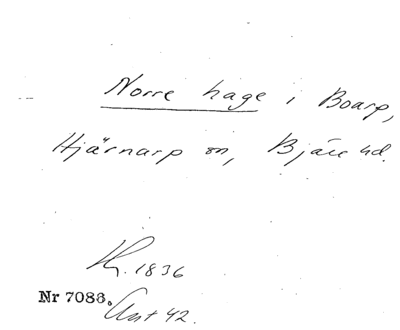 Norre hage i Boarp,
Hjärnarp sn, Bjäre hd.
K. 1836
Nr 7086.
Avst 42.